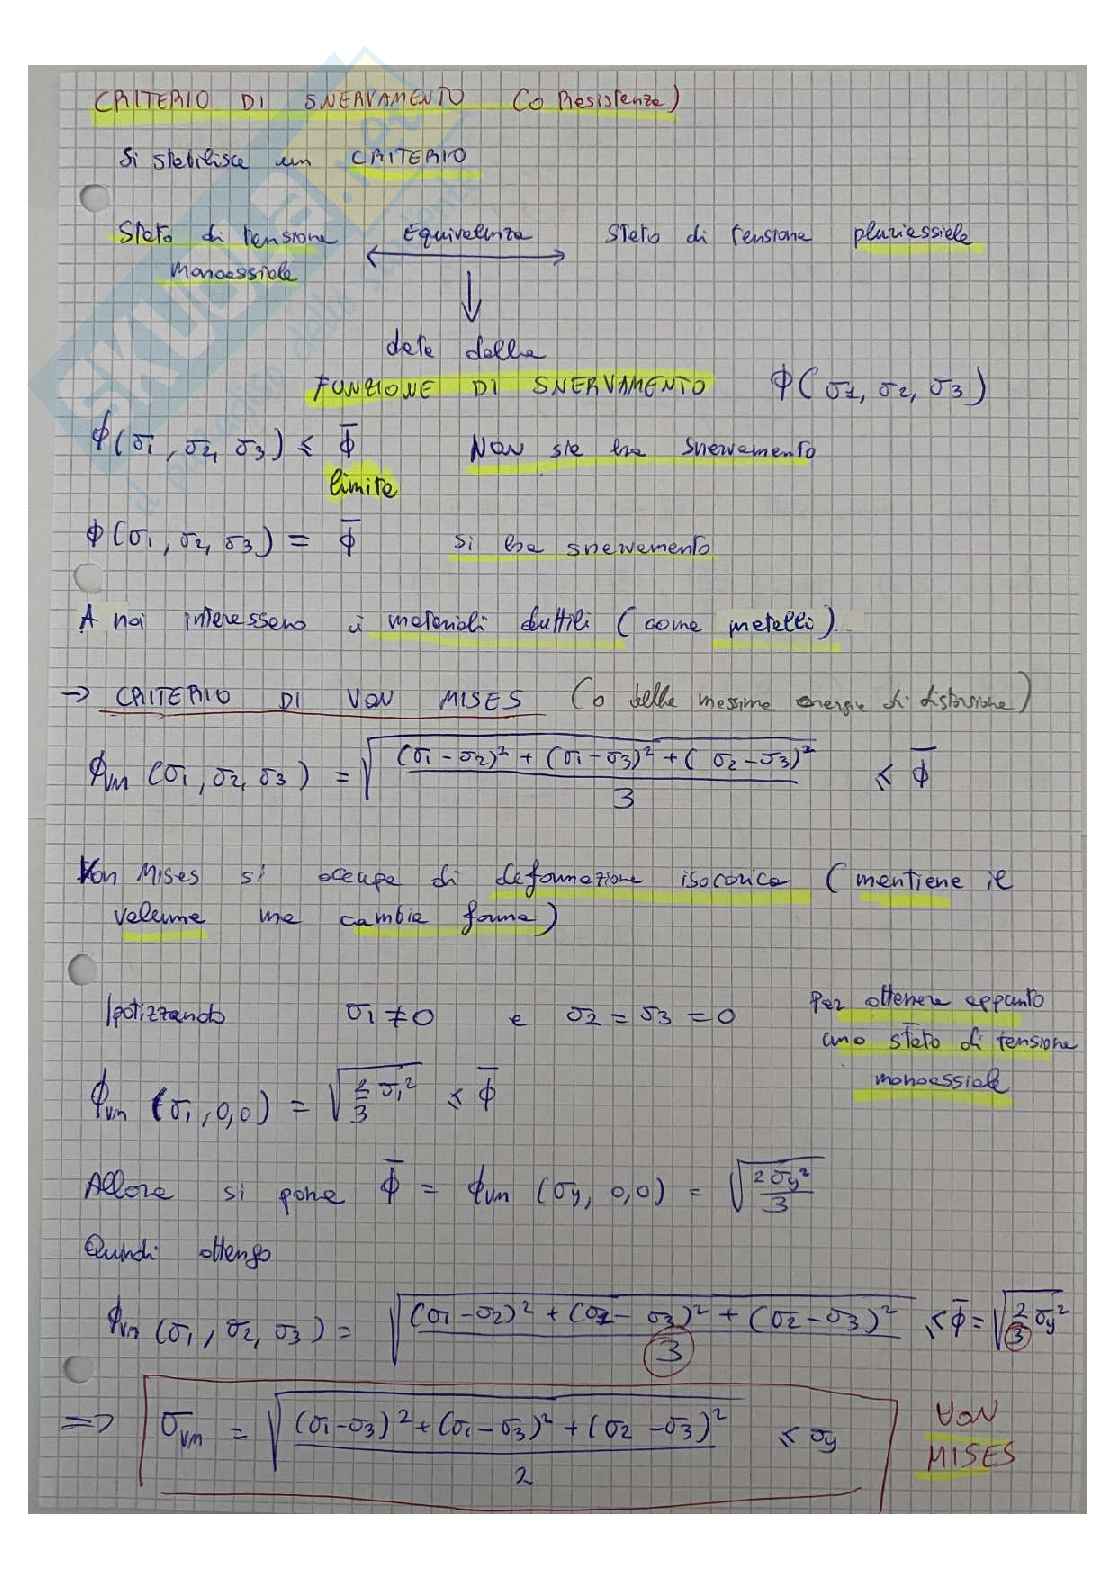 CRITERIO DI SNERVAMENTO (o Resistenza)
Si stabilisce un CRITERIO
Stato di tensione monoassiale Equivalenza Stato di tensione pluriassiale
data dalla
FUNZIONE DI SNERVAMENTO ϕ(σ1, σ2, σ3)
ϕ(σ1, σ2, σ3) ≤ ϕ̅ Non si ha snervamento
limite
ϕ(σ1, σ2, σ3) = ϕ̅ si ha snervamento
A noi interessano i materiali duttili (come metalli)
→ CRITERIO DI VON MISES (o della massima energia di distorsione)
ϕvm (σ1, σ2, σ3) = √((σ1-σ2)² + (σ1-σ3)² + (σ2-σ3)² / 3) ≤ ϕ̅
Von Mises si occupa di deformazione isocorica (mantiene il
volume ma cambia forma)
Ipotizzando σ1 ≠ 0 e σ2 = σ3 = 0 Per ottenere appunto
uno stato di tensione
monoassiale
ϕvm (σ1, 0, 0) = √(2/3 σ1²) ≤ ϕ̅
Allora si pone ϕ̅ = ϕvm (σy, 0, 0) = √(2σy² / 3)
Quindi ottengo
ϕvm (σ1, σ2, σ3) = √((σ1-σ2)² + (σ1-σ3)² + (σ2-σ3)² / 3) ≤ ϕ̅ = √(2/3 σy²)
⇒ σvm = √((σ1-σ3)² + (σ1-σ3)² + (σ2-σ3)² / 2) ≤ σy VON
MISES